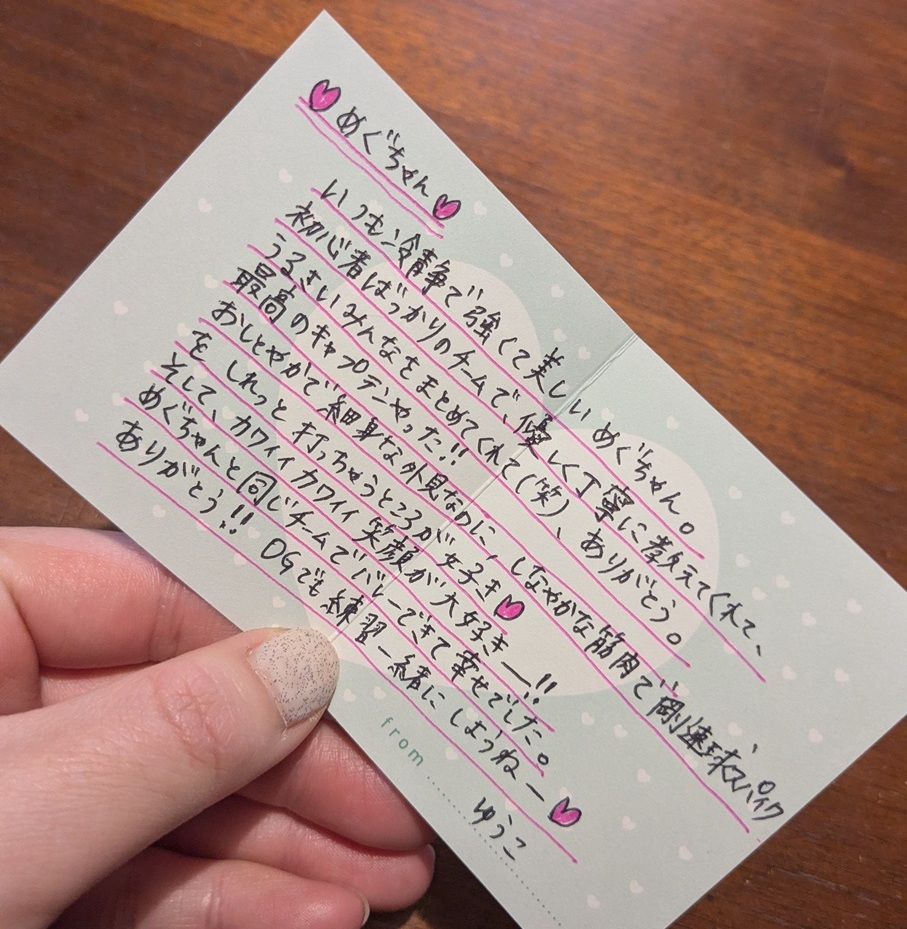 ♥めぐちゃん♥
いつも冷静で強くて美しいめぐちゃん。
初心者ばっかりのチームで、優しく丁寧に教えてくれて、
うるさいみんなをまとめてくれて(笑)、ありがとう。
最高のキャプテンやった!!
おしとやかで細身な外見なのに、しなやかな筋肉で剛速球スパイク
をしれっと打っちゃうところが好き♥
そして、カワイイカワイイ笑顔が大好きー!!
めぐちゃんと同じチームでバレーできて幸せでした。
ありがとう!! OGでも練習一緒にしようねー♥
from ゆうこ